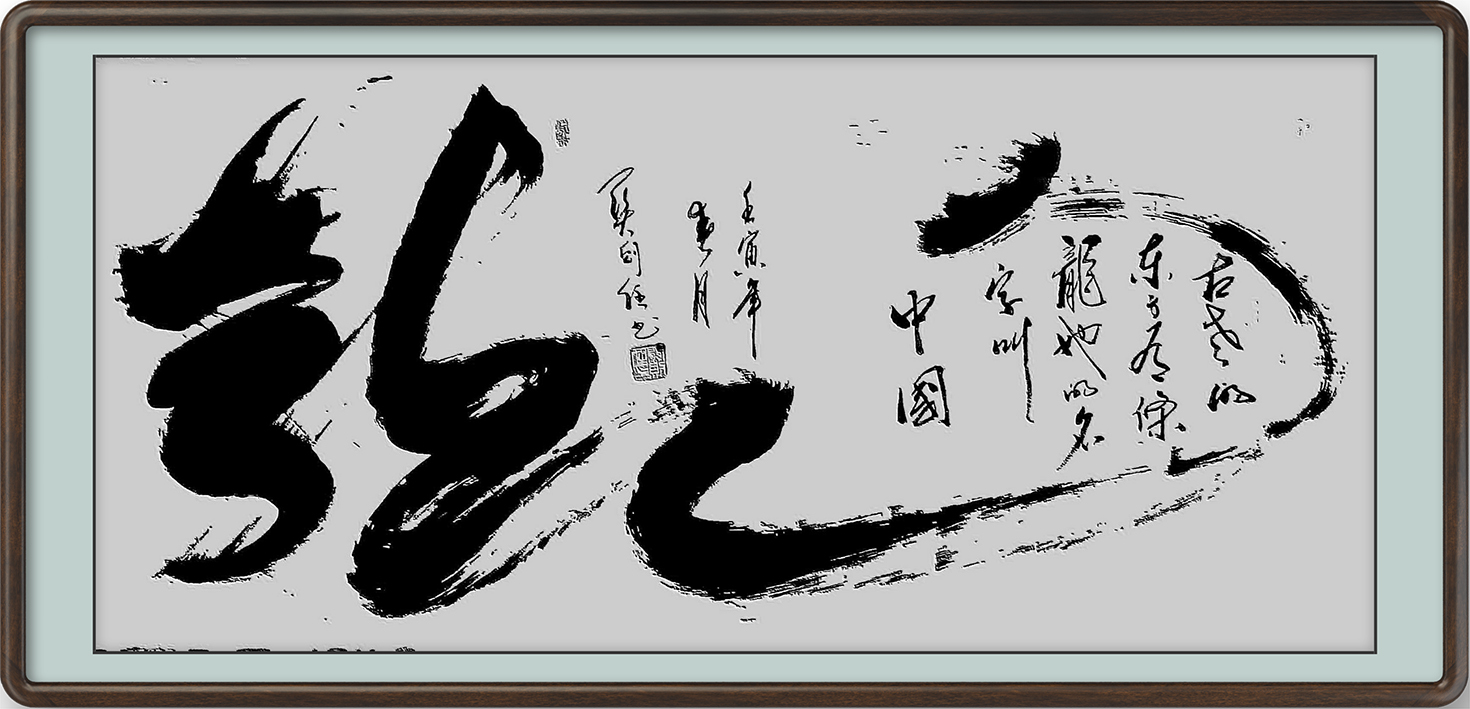 龍
古老的
东方有条
龍她的名
字叫
中國
壬寅年
春月
书